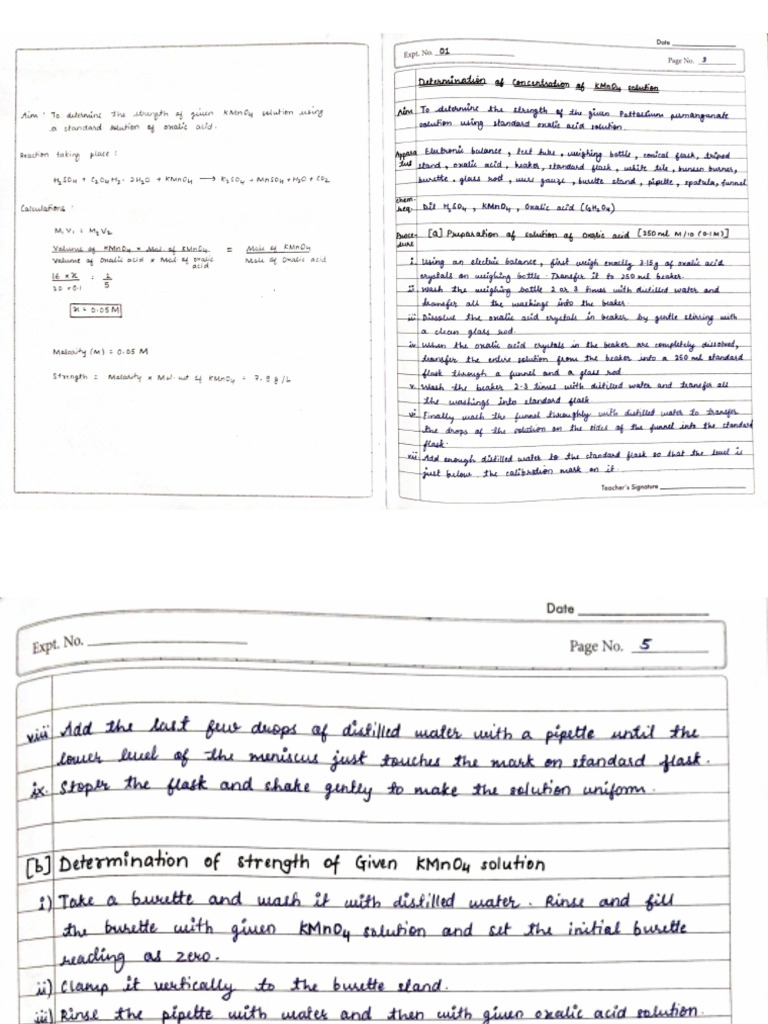 Aim : To determine the strength of given KMnO4 solution using
a standard solution of oxalic acid.
Reaction taking place :
H2SO4 + C2O4H2.2H2O + KMnO4 → K2SO4 + MnSO4 + H2O + CO2
Calculations :
M1V1 = M2V2
Volume of KMnO4 × Mol. of KMnO4 = Mole of KMnO4
Volume of Oxalic acid × Mol of oxalic acid Mole of Oxalic acid
16 × x = 2
20 × 0.1 5
x = 0.05M
Molarity (M) = 0.05 M
Strength = Molarity × Mol. wt of KMnO4 = 7.9 g/L
Date
Expt. No. 01
Page No. 3
Determination of Concentration of KMnO4 solution
Aim To determine the strength of the given Pottasium permanganate
solution using standard oxalic acid solution.
Appara tus Electronic balance, test tube, weighing bottle, conical flask, tripod
stand, oxalic acid, beaker, standard flask, white tile, bunsen burner,
burette, glass rod, wire gauze, burette stand, pipette, spatula, funnel
chem. req. Dil H2SO4, KMnO4, Oxalic acid (C2H2O4)
Proce- dure [a] Preparation of solution of oxalic acid [250 ml M/10 (0.1M)]
i. Using an electric balance, first weigh exactly 3.15g of oxalic acid
crystals on weighing bottle. Transfer it to 250 ml beaker.
ii. Wash the weighing bottle 2 or 3 times with distilled water and
transfer all the washings into the beaker.
iii Dissolve the oxalic acid crystals in beaker by gentle stirring with
a clean glass rod.
iv. When the oxalic acid crystals in the beaker are completely dissolved,
transfer the entire solution from the beaker into a 250 ml standard
flask through a funnel and a glass rod
v. Wash the beaker 2-3 times with distilled water and transfer all
the washings into standard flask
vi Finally wash the funnel throughly with distilled water to transfer
the drops of the solution on the sides of the funnel into the standard
flask.
vii. Add enough distilled water to the standard flask so that the level is
just below the calibration mark on it.
Teacher's Signature
Date
Expt. No.
Page No. 5
viii Add the last few drops of distilled water with a pipette until the
lower level of the meniscus just touches the mark on standard flask.
ix. Stoper the flask and shake gently to make the solution uniform.
[b] Determination of strength of Given KMnO4 solution
i) Take a burette and wash it with distilled water. Rinse and fill
the burette with given KMnO4 solution and set the initial burette
reading as zero.
ii) Clamp it vertically to the burette stand.
iii) Rinse the pipette with water and then with given oxalic acid solution.